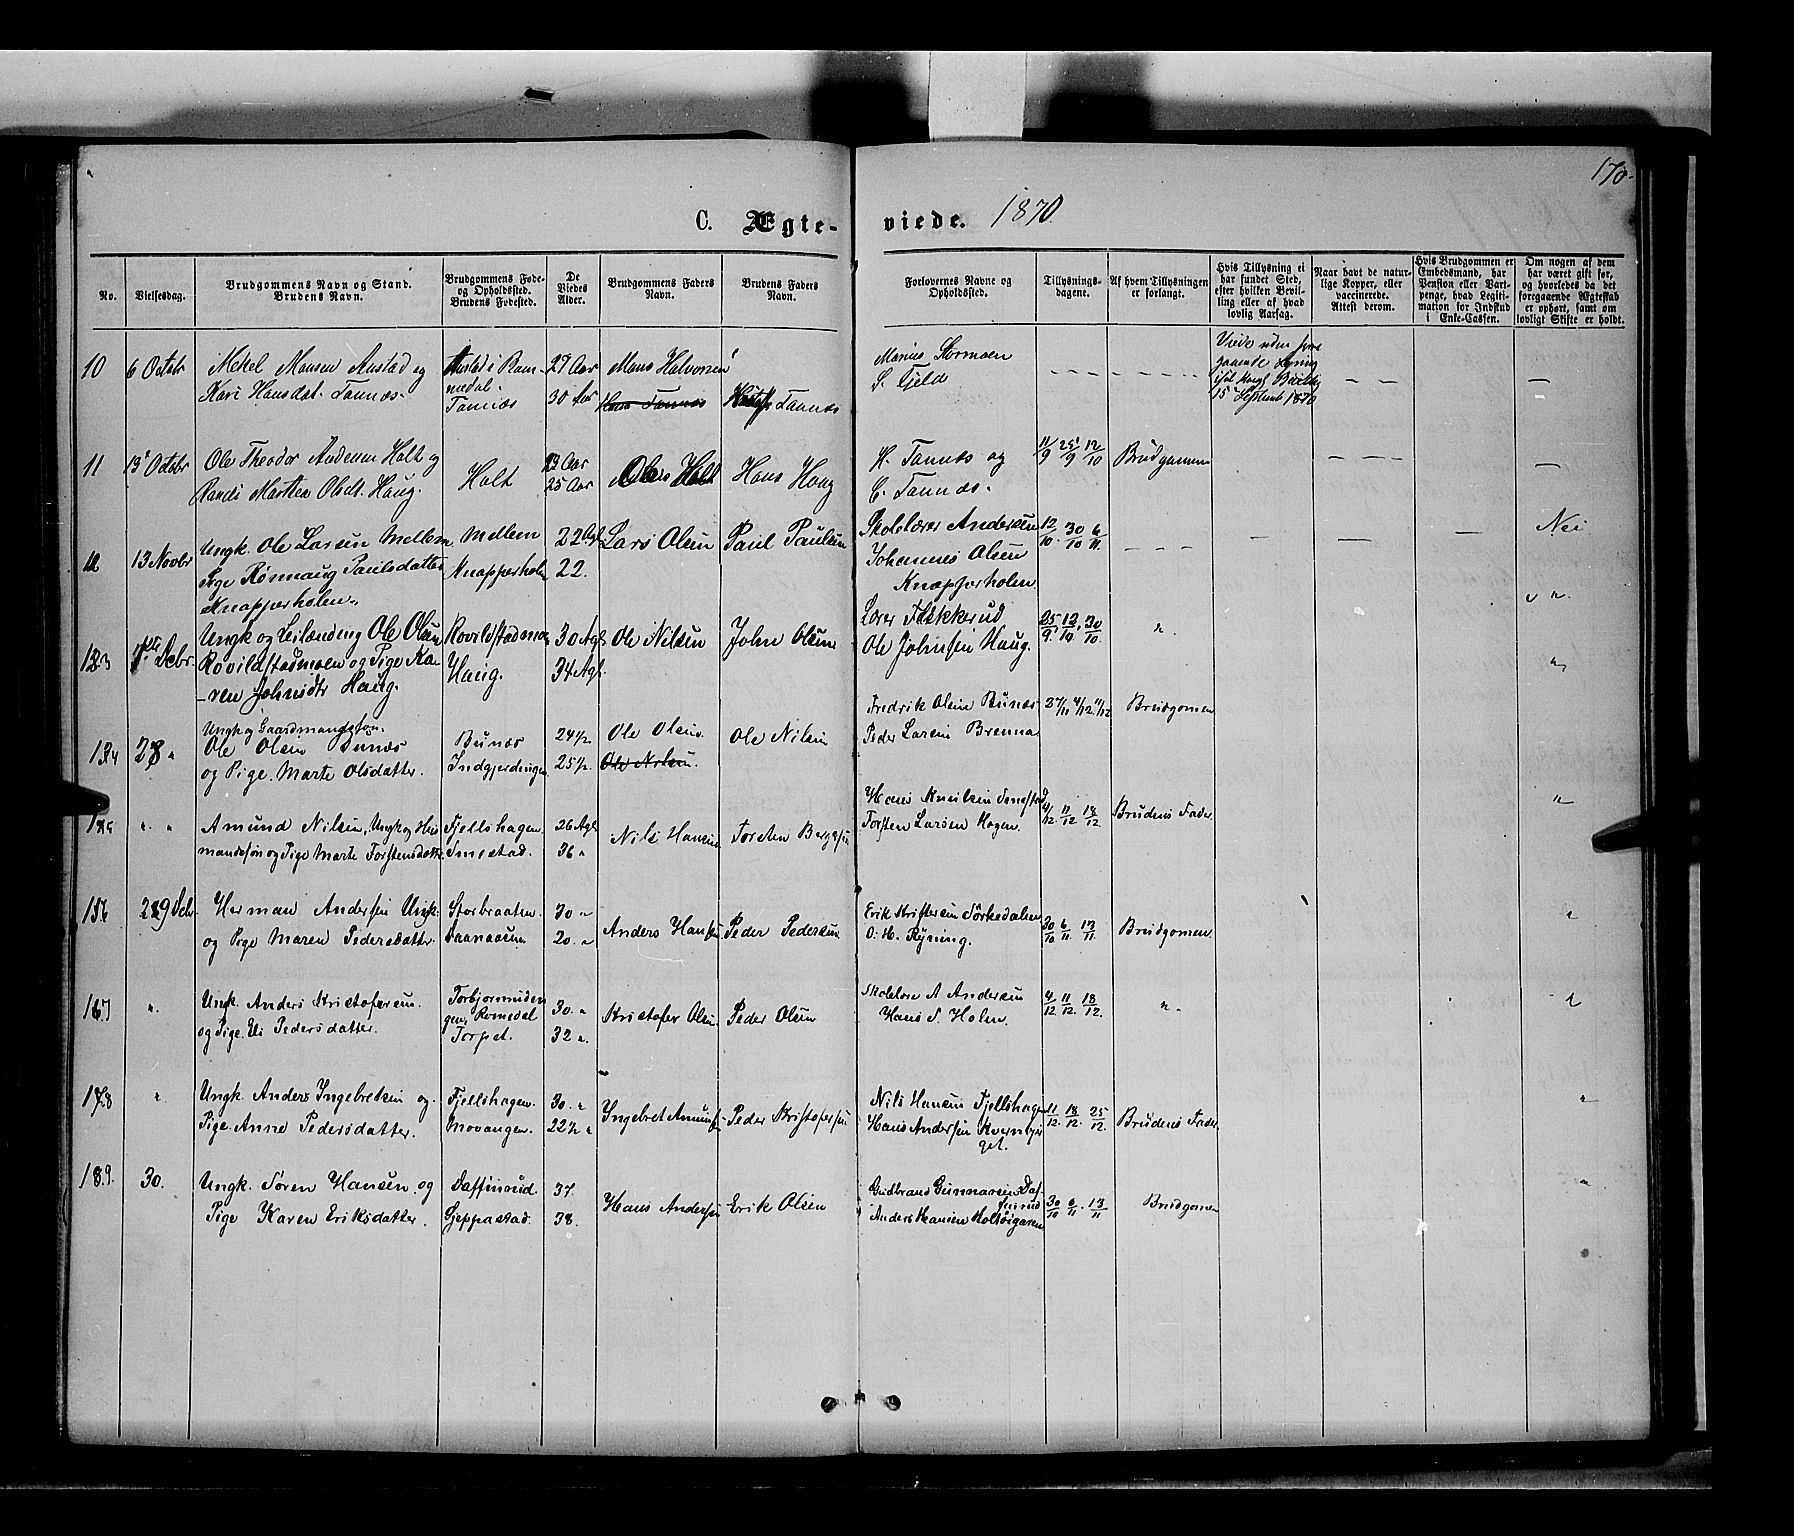 170.
C. Ægteviede. 1870.
No.
Vielsesdag.
Brudgommens Navn og Stand.
Brudens Navn.
Brudgommens Føde-
og Opholdssted.
Brudens Fødested.
De
Viedes
Alder.
Brudgommens Faders
Navn.
Brudens Faders
Navn.
Forlovernes Navne og
Opholdssted.
Tillysnings-
dagene.
Af hvem Tillysningen
er forlangt.
Hvis Tillysning ei
har fundet Sted,
efter hvilken Bevil-
ling eller af hvad
lovlig Aarsag.
Naar havt de natur-
lige Kopper, eller
vaccinerede.
Attest derom.
Hvis Brudgommen er
Embedsmand, har
Pension eller Vart-
penge, hvad Legiti-
mation for Indskud
i Enke-Cassen.
Om nogen af dem
har været gift før,
og hvorledes da det
foregaaende Ægteskab
er ophørt, samt om
lovligt Skifte er holdt.
10
6 Octobr
Mekel Monsen Austad og
Kari Hansdat. Tannæs.
Austad i Rom-
medal.
Tannæs
27 Aar
30 Aar
Mons Halvorsen
Tannæs
Tannæs
Marius Stormoen
S. Fjeld
Viede uden fore
gaaende Lysning
15 Septemb 1870
11
13 Octobr
Ole Theodor Andersen Holt og
Randi Marthea Olsdt. Haug.
Holt
23 Aar
25 Aar
Holt
Hans Haug
H. Tannæs og
C. Tannæs.
11/9 25/9 12/10
Brudgommen
12
13 Novbr
Ungk. Ole Larsen Mellem
Pige Rønnaug Paulsdatter
Knapperholen
Mellem
Knapperholen
22 Agl
22.
Lars Olsen
Paul Paulsen
Skolelærer Andersen
Johannes Olsen
Knapperholen
12/10. 30/10 6/11.
Nei
13
Decbr.
Ungk og Leilænding Ole Olsen
Rovildstadmoen og Pige Ka-
-ren Johnsdtr Haug.
Rovildstadmoen
Haug.
30 Agl
34 Agl.
Ole Nilsen
John Olsen
Lærer Flikkerud
Ole Johnsen Haug.
25/9. 12/10, 30/10
"
14
28 "
Ungk og Gaardmandssøn
Ole Olsen Bunæs
og Pige. Marte Olsdatter.
Bunæs
Indgjerdingen
24 1/2
25 1/2.
Ole Olsen.
Ole Nilsen.
Ole Nilsen
Fredrik Olsen Bunæs
Peder Larsen Brenna
27/11 4/12 11/12
Brudgomen
15
" "
Amund Nilsen, Ungk og Hus
mandssøn og Pige Marte Torstensdatter
Fjellshagen
Smestad.
26 Agl
36 "
Nils Hansen
Torsten
Hans Knudsen Smestad
Torsten Larsen Hagen.
4/12. 11/12. 18/12.
Brudens Fader
16
29 Debr
Herman Andersen Ungk.
og Pige Maren Pedersdatter.
Storbraaten.
30 "
20. "
Anders Hansen
Peder Pedersen
Erik Kristofersen Sørkedalen
O. H. Ryning.
30/10 6/11. 13/11.
Brudgomen
17
".
Ungk. Anders Kristofersen.
og Pige. Eli Pedersdatter.
Romedal
Torpet.
30. "
32 ".
Kristofer Olsen
Peder Olsen
Skolelær A Andersen
Hans A. Holen.
4/12 11/12. 18/12.
" "
18
".
Ungk. Anders Ingebretsen og
Pige. Anne Pedersdatter.
Fjellshagen.
Movangen.
30. "
22 1/2 "
Ingebret Amundsen
Peder Kristofersen
Nils Hansen Fjellshagen
Hans Andersen Kvernbjør
get.
11/12. 18/12. 25/12.
Brudens Fader
19.
30.
Ungk. Søren Hansen. og
Pige Karen Eriksdatter.
Daffinrud.
Gjeppastad.
37.
38.
Hans Andersen
Erik Olsen
Gudbrand Gunnarsen Daf-
finrud
Anders Hansen
30/10 6/11. 13/11
Brudgomen